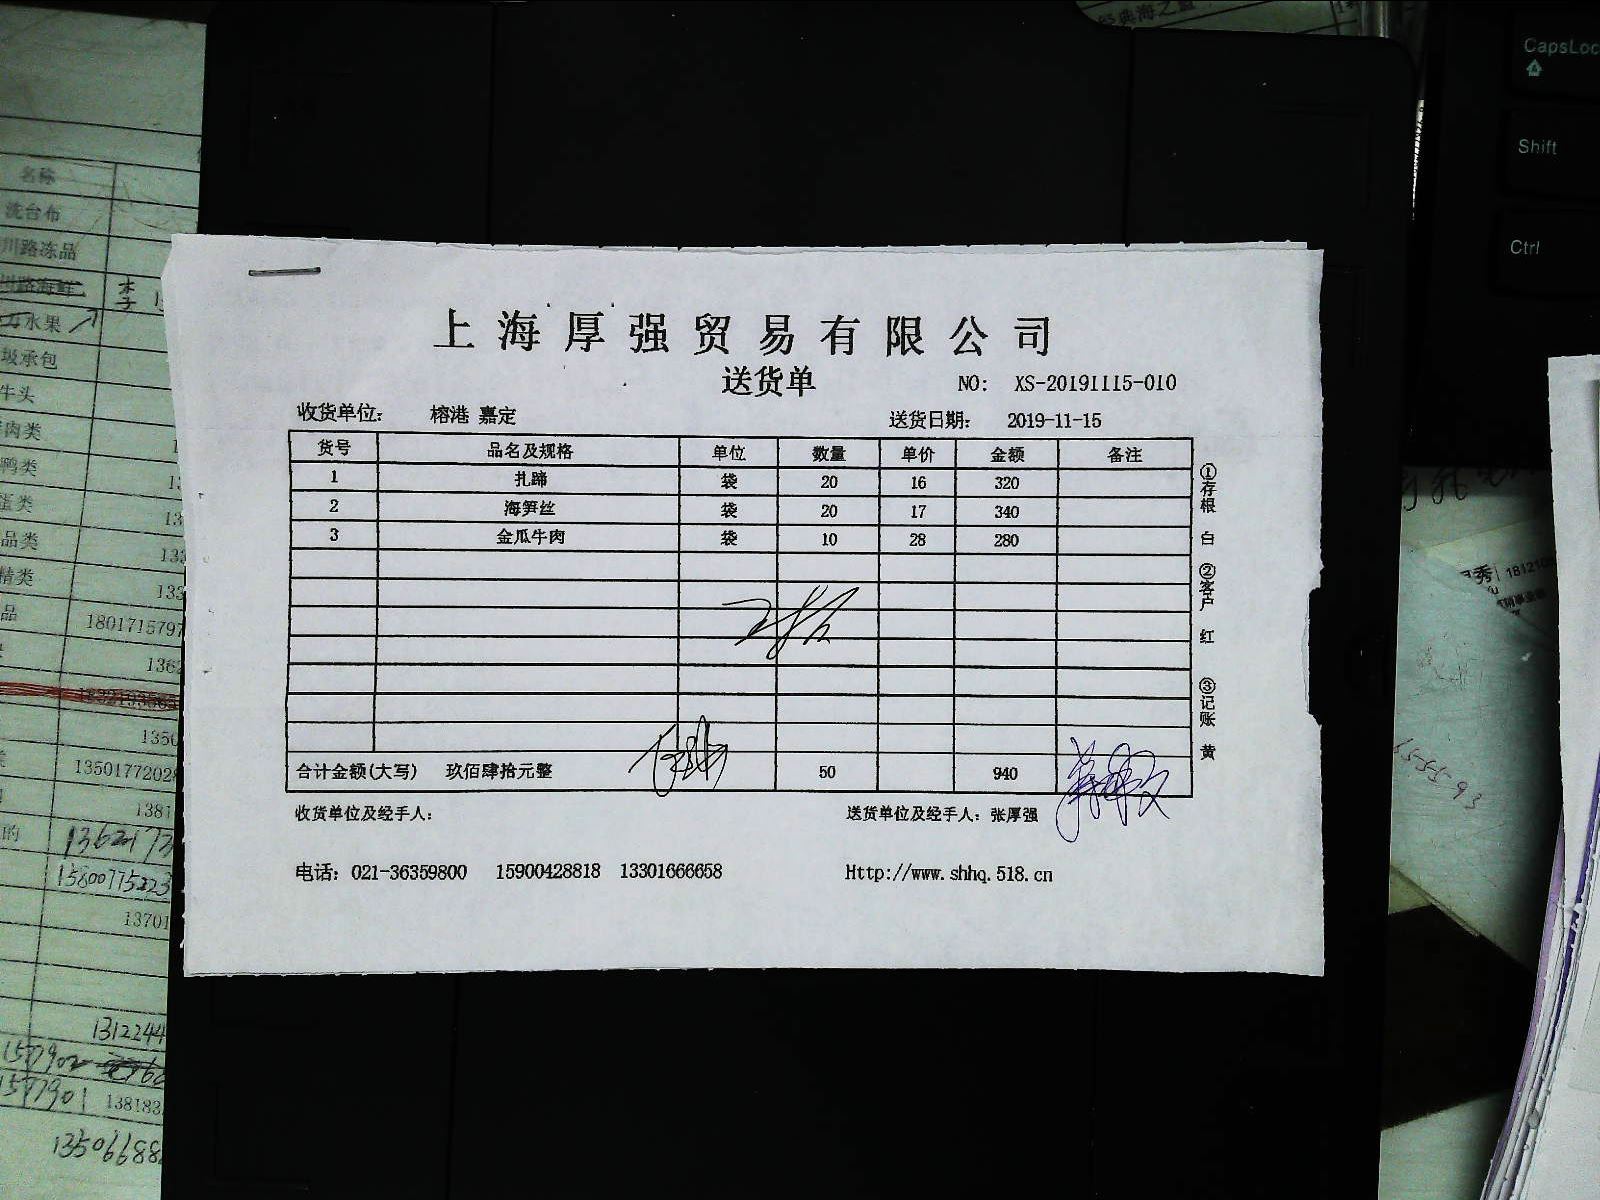 上海厚强贸易有限公司
送货单
NO: XS-20191115-010
收货单位: 榕港 嘉定 送货日期: 2019-11-15
货号 品名及规格 单位 数量 单价 金额 备注
1 扎蹄 袋 20 16 320
2 海笋丝 袋 20 17 340
3 金瓜牛肉 袋 10 28 280
合计金额(大写) 玖佰肆拾元整 50 940
收货单位及经手人: 送货单位及经手人: 张厚强
电话: 021-36359800 15900428818 13301666658 Http://www.shhq.518.cn
①存根 白 ②客户 红 ③记账 黄
名称
洗台布
川路冻品
川路海鲜
水果
圾承包
牛头
肉类
鸭类
蛋类
品类
精类
品
1801715797
1362
1350
1350177202
1381
的 1362173
15800775223
13701
1312244
1577902
1577901 138183
13506688
CapsLoc
Shift
Ctrl
秀 181210